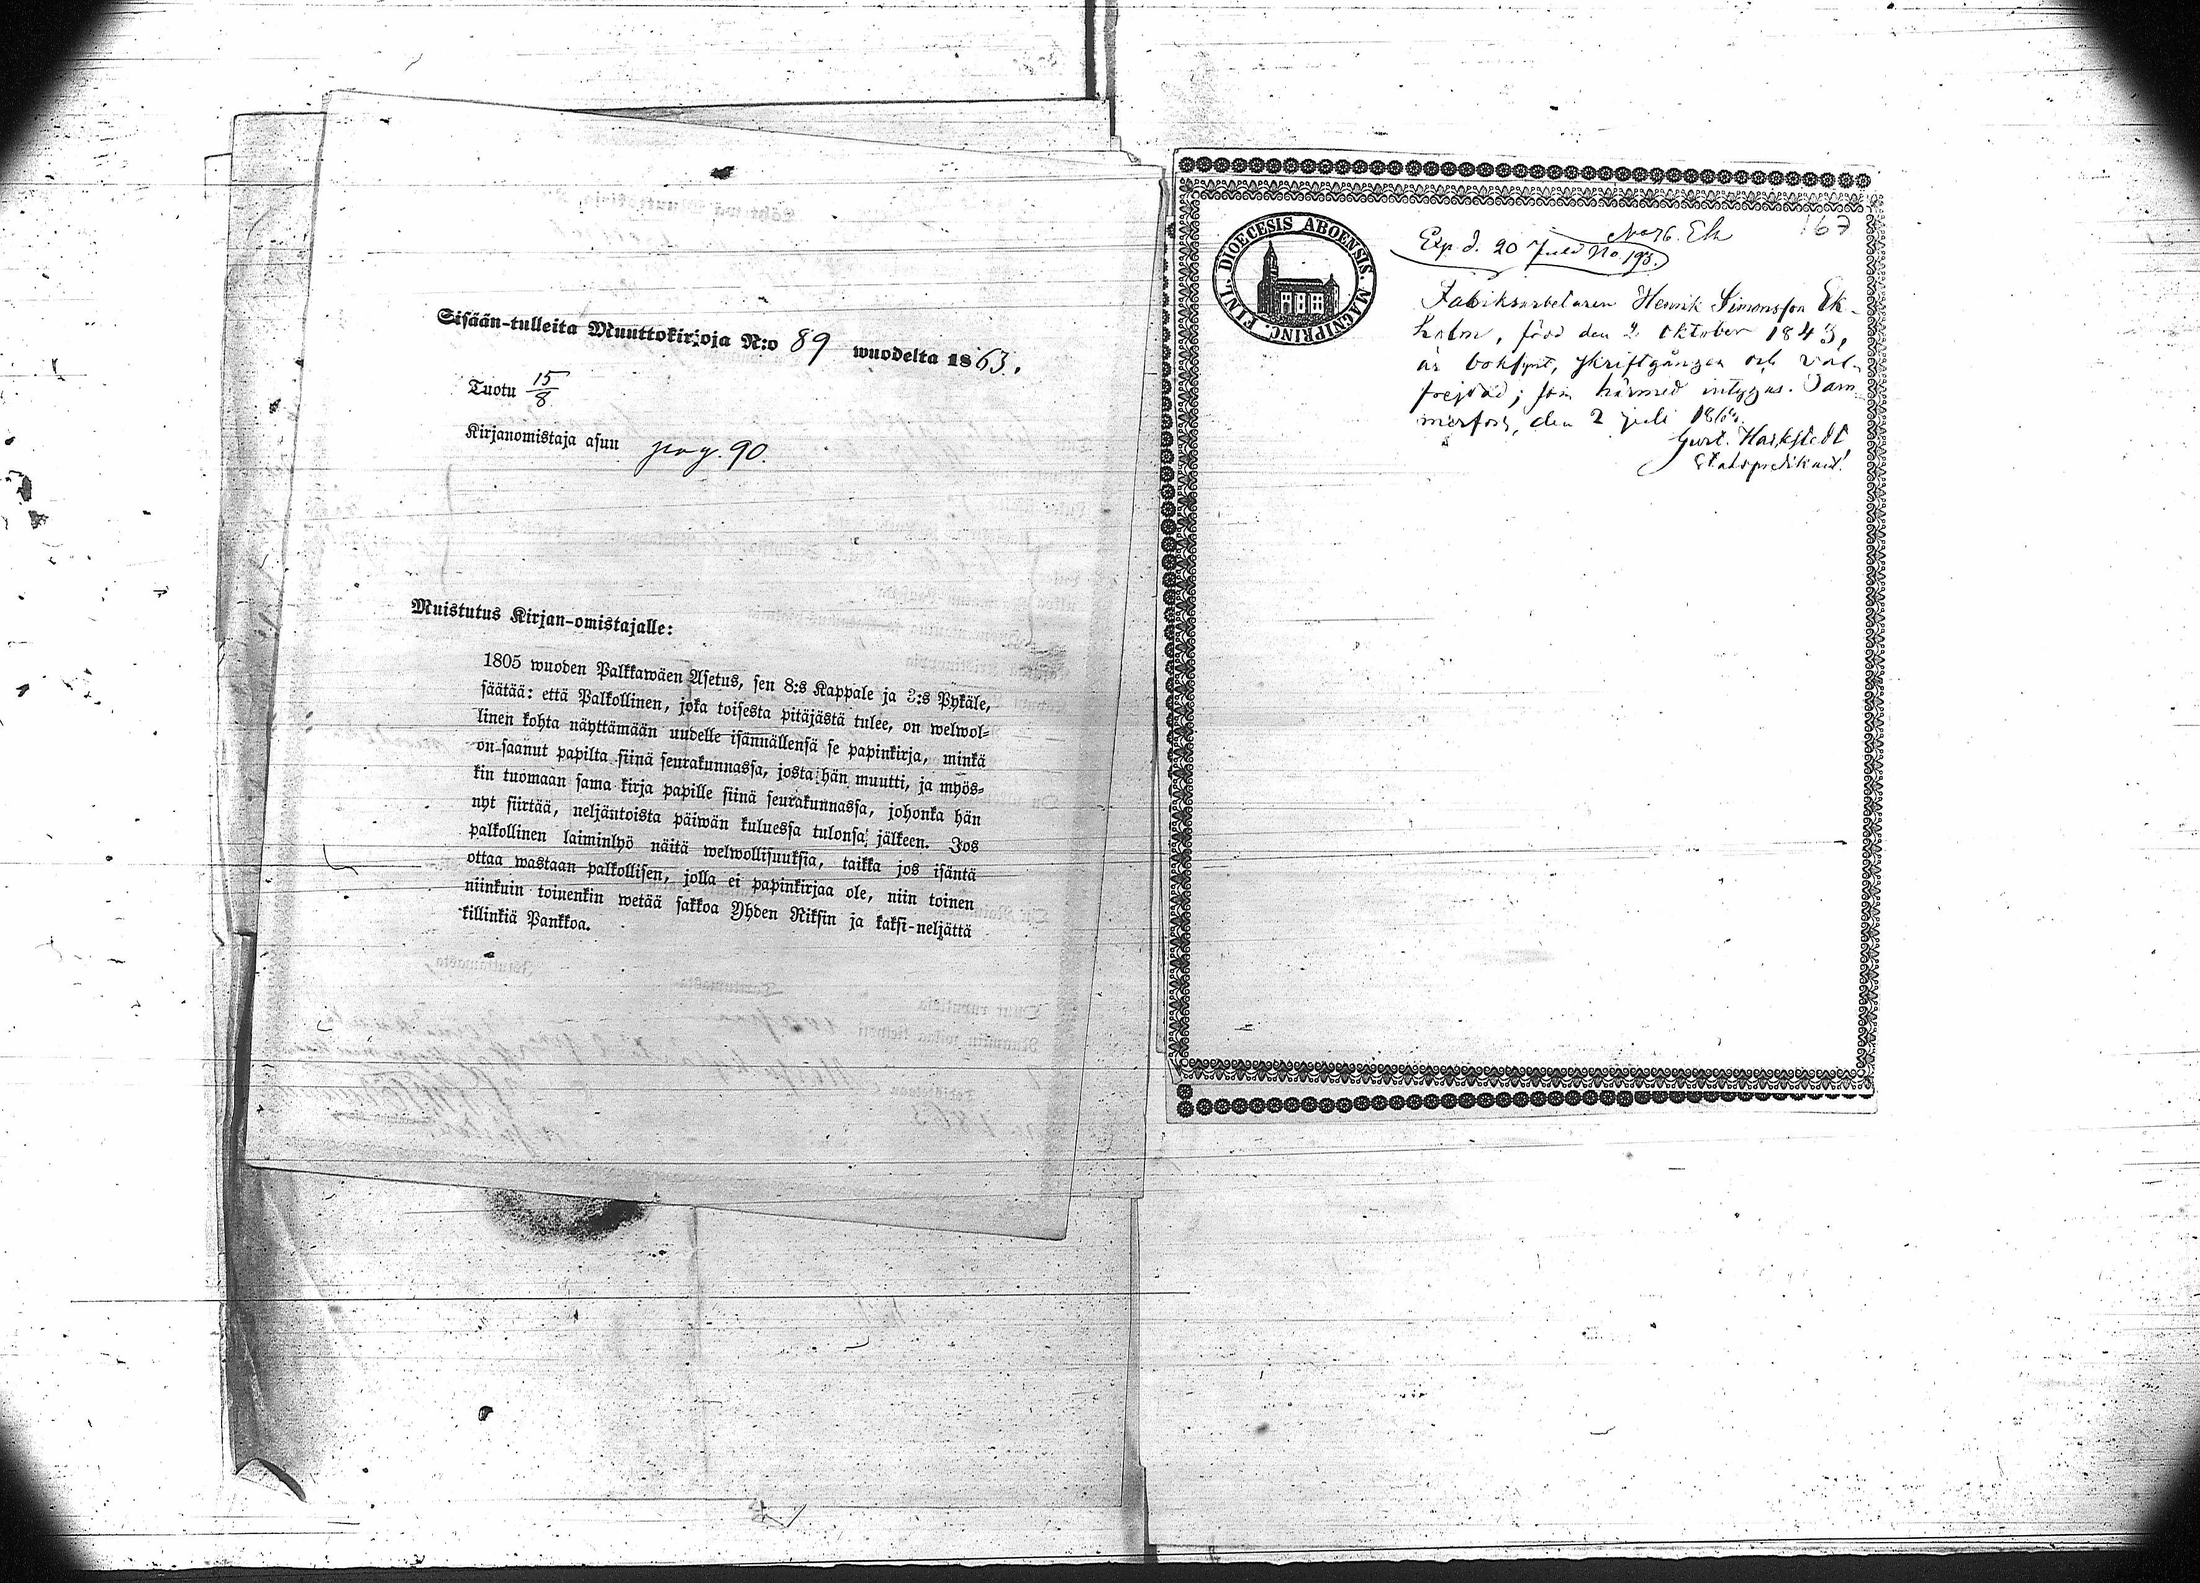 Sisään-tulleita Muuttokirjoja N:o 89 wuodelta 1863.
Tuotu 15/8
Kirjanomistaja asuu pag. 90.
Muistutus Kirjan-omistajalle:
1805 wuoden Palkkawäen Asetus, sen 8:s Kappale ja 3:s Pykäle,
säätää: että Palkollinen, joka toisesta pitäjästä tulee, on welwol-
linen kohta näyttämään uudelle isännällensä se papinkirja, minkä
on saanut papilta siinä seurakunnassa, josta hän muutti, ja myös-
kin tuomaan sama kirja papille siinä seurakunnassa, johonka hän
nyt siirtää, neljäntoista päiwän kuluessa tulonsa jälkeen. Jos
palkollinen laiminlyö näitä welwollisuuksia, taikka jos isäntä
ottaa wastaan palkollisen, jolla ei papinkirjaa ole, niin toinen
niinkuin toinenkin wetää sakkoa Yhden Riksin ja kaksi-neljättä
killinkiä Pankkoa.
FINL. DIOECESIS ABOENSIS. MAGNIPRINC.
No 76. Ek
167
Exp d. 20 Juli No. 193.
Fabriksarbetaren Henrik Simonsson Ek-
holm, född den 2 Oktober 1843,
är bokfynt, skriftgången och väl-
frejdad; som härmed intygas. Tam-
merfors, den 2 juli
Gust. Harkstedt
Stadspredikant